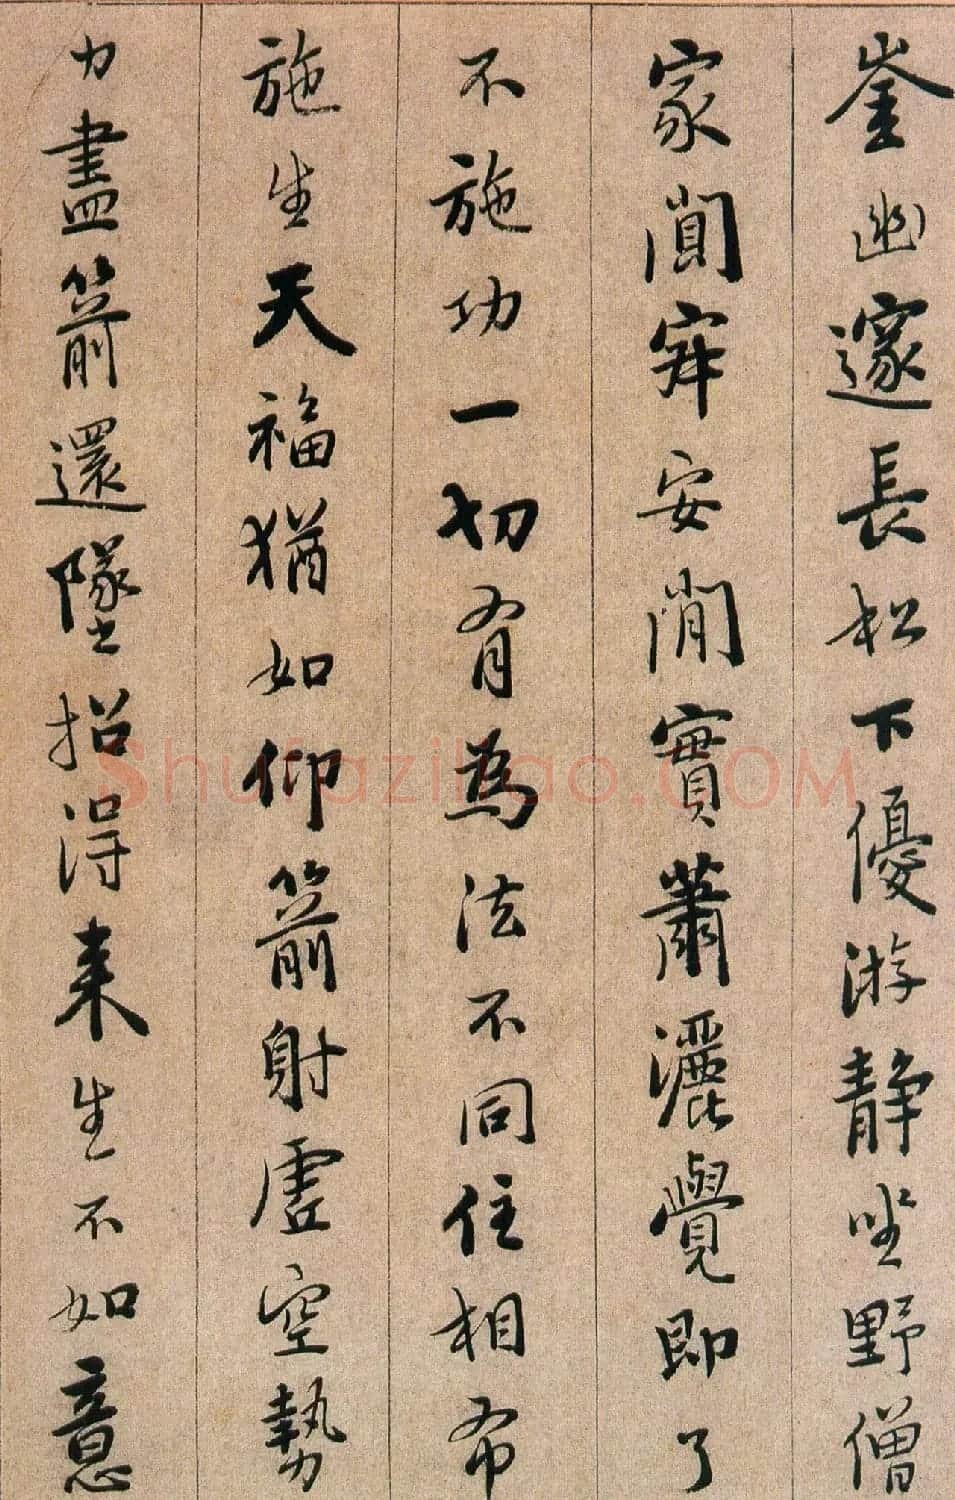 崟幽邃長松下優游静坐野僧
家闃寂安閒實蕭灑覺即了
不施功一切有為法不同住相布
施生天福猶如仰箭射虛空勢
力盡箭還墜招得来生不如意
Shufaziliao.COM